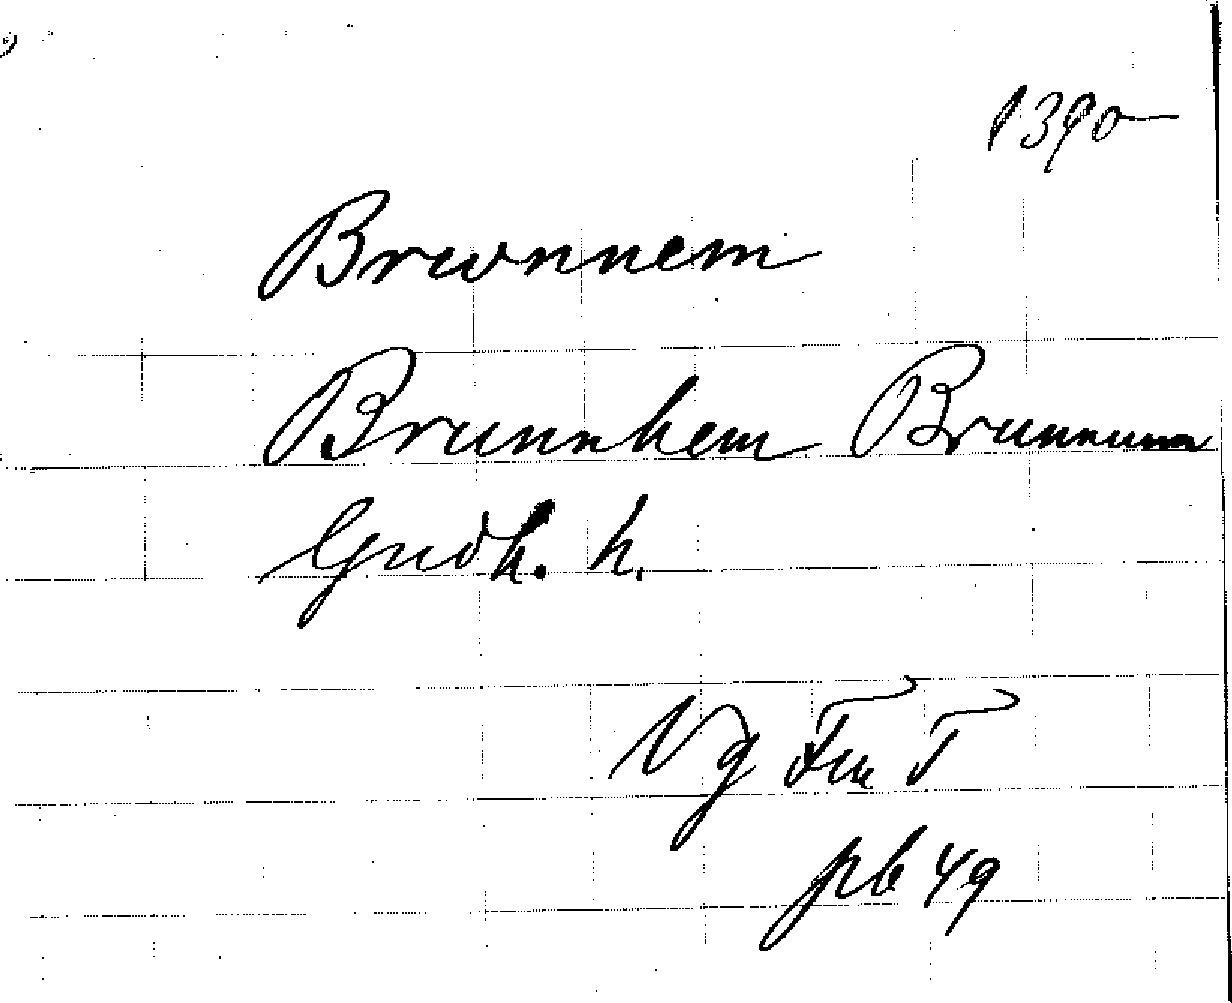 1390
Brwnnem
Brunnhem Brunnum
Gudh. h.
Vg FmT
pb 49